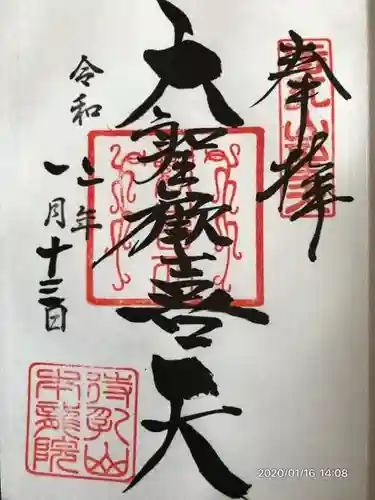 奉拝
大聖歓喜天
令和二年
一月十三日
待乳山
本龍院
2020/01/16 14:08